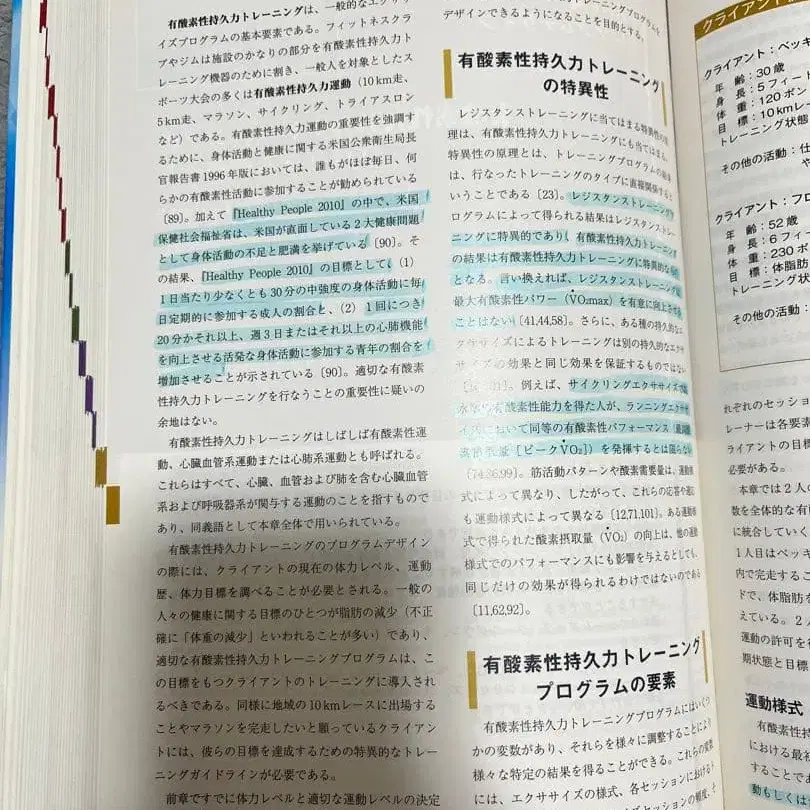 有酸素性持久力トレーニングは、一般的なエクササ
イズプログラムの基本要素である。フィットネスクラ
ブやジムは施設のかなりの部分を有酸素性持久力ト
レーニング機器のために割き、一般人を対象としたス
ポーツ大会の多くは有酸素性持久力運動（10km走、
5km走、マラソン、サイクリング、トライアスロン
など）である。有酸素性持久力運動の重要性を強調す
るために、身体活動と健康に関する米国公衆衛生局長
官報告書1996年版においては、誰もがほぼ毎日、何
らかの有酸素性活動に参加することが勧められている
〔89〕。加えて『Healthy People 2010』の中で、米国
保健社会福祉省は、米国が直面している2大健康問題
として身体活動の不足と肥満を挙げている〔90〕。そ
の結果、『Healthy People 2010』の目標として、（1）
1日当たり少なくとも30分の中強度の身体活動に毎
日定期的に参加する成人の割合と、（2）1回につき
20分かそれ以上、週3日またはそれ以上の心肺機能
を向上させる活発な身体活動に参加する青年の割合を
増加させることが示されている〔90〕。適切な有酸素
性持久力トレーニングを行なうことの重要性に疑いの
余地はない。
有酸素性持久力トレーニングはしばしば有酸素性運
動、心臓血管系運動または心肺系運動とも呼ばれる。
これらはすべて、心臓、血管および肺を含む心臓血管
系および呼吸器系が関与する運動のことを指すもので
あり、同義語として本章全体で用いられている。
有酸素性持久力トレーニングのプログラムデザイン
の際には、クライアントの現在の体力レベル、運動
歴、体力目標を調べることが必要とされる。一般の
人々の健康に関する目標のひとつが脂肪の減少（不正
確に「体重の減少」といわれることが多い）であり、
適切な有酸素性持久力トレーニングプログラムは、こ
の目標をもつクライアントのトレーニングに導入され
るべきである。同様に地域の10kmレースに出場する
ことやマラソンを完走したいと願っているクライアン
トには、彼らの目標を達成するための特異的なトレー
ニングガイドラインが必要である。
前章ですでに体力レベルと適切な運動レベルの決定
デザインできるようになることを目的とする。
有酸素性持久力トレーニング
の特異性
レジスタンストレーニングに当てはまる特異性の原
理は、有酸素性持久力トレーニングにも当てはまる。
特異性の原理とは、トレーニングプログラムの結果
は、行なったトレーニングのタイプに直接関係すると
いうことである〔23〕。レジスタンストレーニングプ
ログラムによって得られる結果はレジスタンストレー
ニングに特異的であり、有酸素性持久力トレーニング
の結果は有酸素性持久力トレーニングに特異的な
となる。言い換えれば、レジスタンストレーニングは
最大有酸素性パワー（V̇O₂max）を有意に向上させる
ことはない〔41,44,58〕。さらに、ある種の持久的なエ
クササイズによるトレーニングは別の持久的なエクサ
サイズの効果と同じ効果を保証するものではない
例えば、サイクリングエクササイズで
有酸素性能力を得た人が、ランニングエクササ
イズにおいて同等の有酸素性パフォーマンス
量［ピークV̇O₂］）を発揮するとは限らない
〔74,86,99〕。筋活動パターンや酸素需要量は、運動様
式によって異なり、したがって、これらの応答や適応
も運動様式によって異なる〔12,71,101〕。ある運動様
式で得られた酸素摂取量（V̇O₂）の向上は、他の運動
様式でのパフォーマンスにも影響を与えるとしても、
同じだけの効果が得られるわけではないのである
〔11,62,92〕。
有酸素性持久力トレーニング
プログラムの要素
有酸素性持久力トレーニングプログラムにはいくつ
かの変数があり、それらを様々に調整することにより
様々な特定の結果を得ることができる。これらの変数
には、エクササイズの様式、各セッションにおけるト
クライアント
クライアント：ペッキ
年 齢：30歳
身 長：5フィート
体 重：120ポン
目 標：10kmレー
トレーニング状態
その他の活動：仕
や
クライアント：フロ
年 齢：52歳
身 長：6フィー
体 重：230ポ
目 標：体脂肪
トレーニング状
その他の活動：
れぞれのセッショ
レーナーは各要素
ライアントの目標
必要がある。
本章では2人の
数を全体的な有
に統合していく
1人目はペッキ
内で完走するこ
ドで、体脂肪を
えている。2人
運動の許可を得
期状態と目標
運動様式
有酸素性持
における最初
することであ
動もしくは